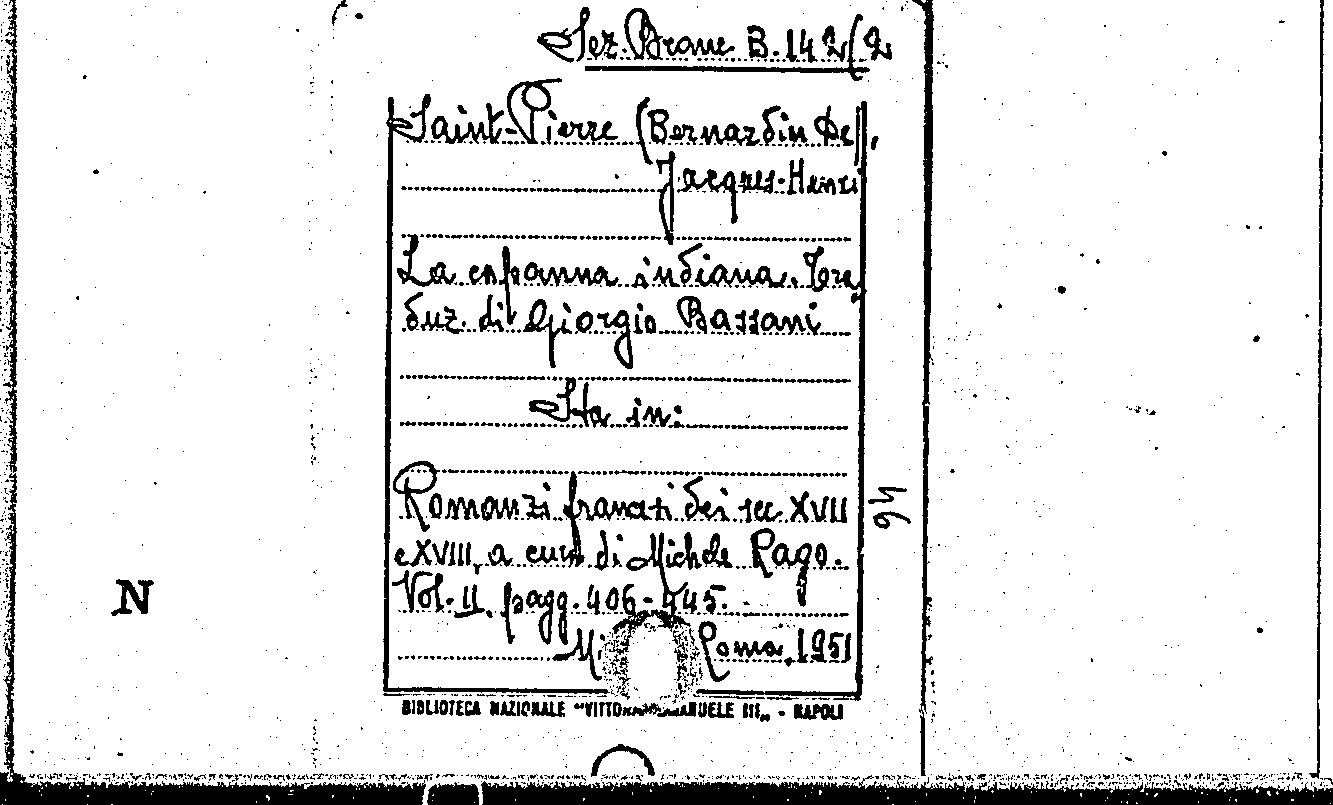 Sez. Branc. B. 142(2
Saint-Pierre (Bernardin De),
Jacques-Henri
La capanna indiana. Tra
duz. di Giorgio Bassani
Sta in:
Romanzi francesi dei sec XVII
e XVIII, a cura di Michele Rago.
Vol. II. pagg. 406-445.
Roma, 1951
94
N
BIBLIOTECA NAZIONALE "VITTORIO EMANUELE III„ - NAPOLI